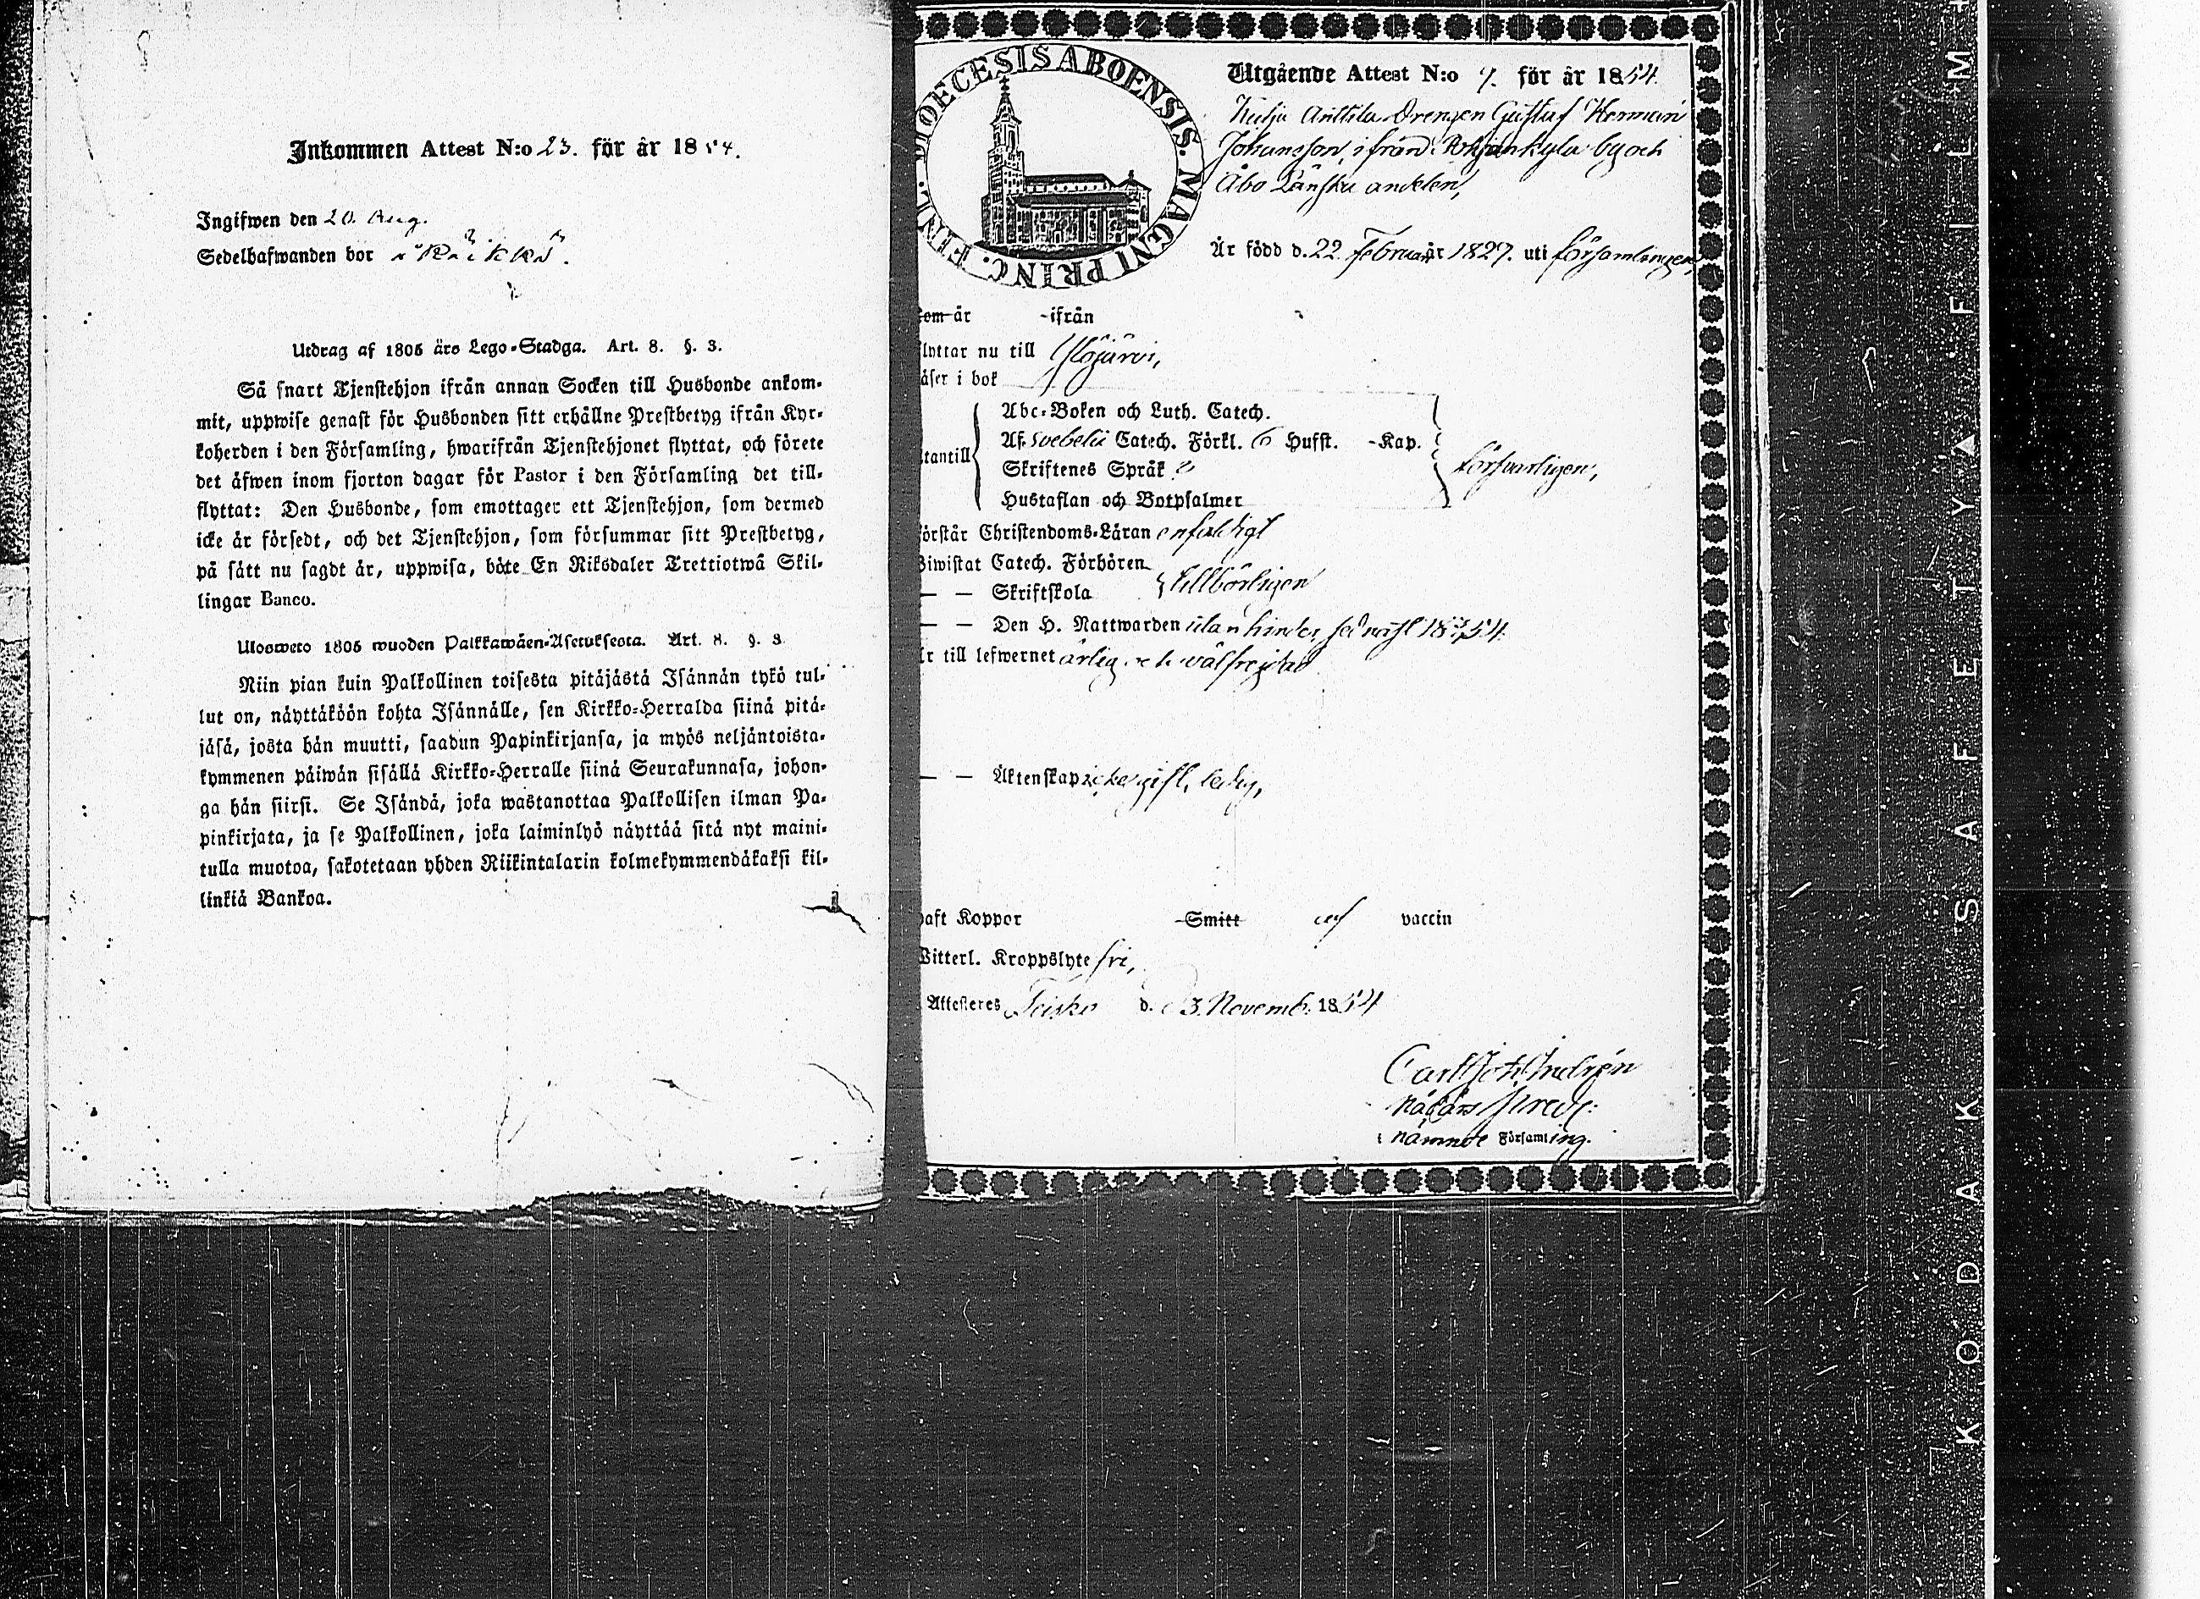 Inkommen Attest N:o 23. för år 1854.
Ingifwen den 20. Aug.
Sedelhafwanden bor i
Utdrag af 1805 års Lego-Stadga. Art. 8. §. 3.
Så snart Tjenstehjon ifrån annan Socken till Husbonde ankom-
mit, uppwise genast för Husbonden sitt erhållne Prestbetyg ifrån Kyr-
koherden i den Församling, hwarifrån Tjenstehjonet flyttat, och förete
det äfwen inom fjorton dagar för Pastor i den Församling det till-
flyttat: Den Husbonde, som emottager ett Tjenstehjon, som dermed
icke är försedt, och det Tjenstehjon, som försummar sitt Prestbetyg,
på sätt nu sagdt är, uppwisa, böte En Riksdaler Trettiotwå Skil-
lingar Banco.
Ulosweto 1805 wuoden Palkkawäen-Asetuksesta. Art. 8. §. 3
Niin pian kuin Palkollinen toisesta pitäjästä Isännän tykö tul-
lut on, näyttäköön kohta Isännälle, sen Kirkko-Herralda siinä pitä-
jäsä, josta hän muutti, saadun Papinkirjansa, ja myös neljäntoista-
kymmenen päiwän sisällä Kirkko-Herralle siinä Seurakunnasa, johon-
ga hän siirsi. Se Isändä, joka wastanottaa Palkollisen ilman Pa-
pinkirjata, ja se Palkollinen, joka laiminlyö näyttää sitä nyt maini-
tulla muotoa, sakotetaan yhden Riikintalarin kolmekymmendäkaksi kil-
linkiä Bankoa.
DIOECESIS ABOENSIS. MAGNI PRINC. FINL.
Utgående Attest N:o 7. för år 1854.
Anttila Drengen Gustaf Herman
Johansson, ifrån Pohjankylä by och
Åbo Länska andelen,
Är född d. 22 Februar år 1827. uti församlingen,
som är - ifrån
flyttar nu till Ylöjärvi,
läser i bok
Abc-Boken och Luth. Catech.
Af. Svebelii Catech. Förkl. 6 Hufst. - Kap.
utantill Skriftenes Språk försvarligen,
Hustaflan och Botpsalmer
förstår Christendoms-Läran enfaldigt
Biwistat Catech. Förhören
— — Skriftskola tillbörligen
— — Den H. Nattwarden utan hinder, sednast 1854.
Är till lefwernet ärlig och välfrejdad
— — Äktenskap icke gift, ledig,
haft Koppor Smitt vaccin
Witterl. Kroppslyte fri,
Attesteres Teisko d. 3. Novemb. 1854
Carl Joh.
i nämnde Församling.
KODAK SAFETY FILM